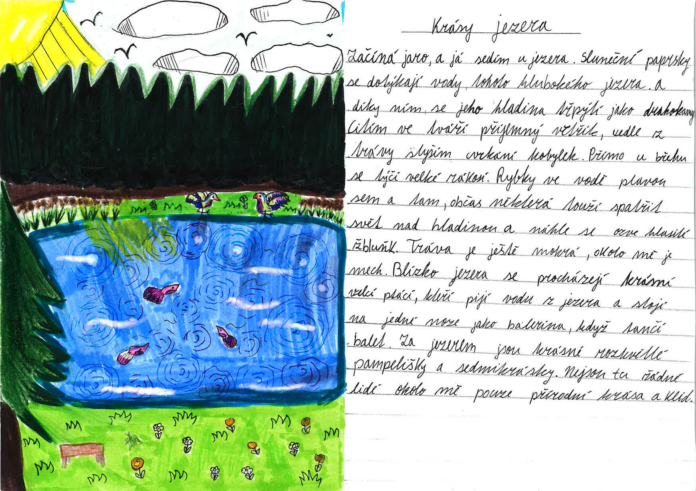 Krásy jezera
Začíná jaro, a já sedím u jezera. Sluneční paprsky
se dotýkají vody, tohoto hlubokého jezera, a
díky nim, se jeho hladina třpytí jako drahokamy.
Cítím ve tváři příjemný větřík, vedle z
trávy slyším cvrkání kobylek. Přímo u břehu
se tyčí velké rákosí. Rybky ve vodě plavou
sem a tam, občas některá touží spatřit
svět nad hladinou a náhle se ozve hlasité
žbluňk. Tráva je ještě mokrá, okolo mě je
mech. Blízko jezera se procházejí krásní
velcí ptáci, kteří pijí vodu z jezera a stojí
na jedné noze jako balerína, když tančí
balet. Za jezerem jsou krásné rozkvetlé
pampelišky a sedmikrásky. Nejsou tu žádné
lidé okolo mě pouze přírodní krása a klid.